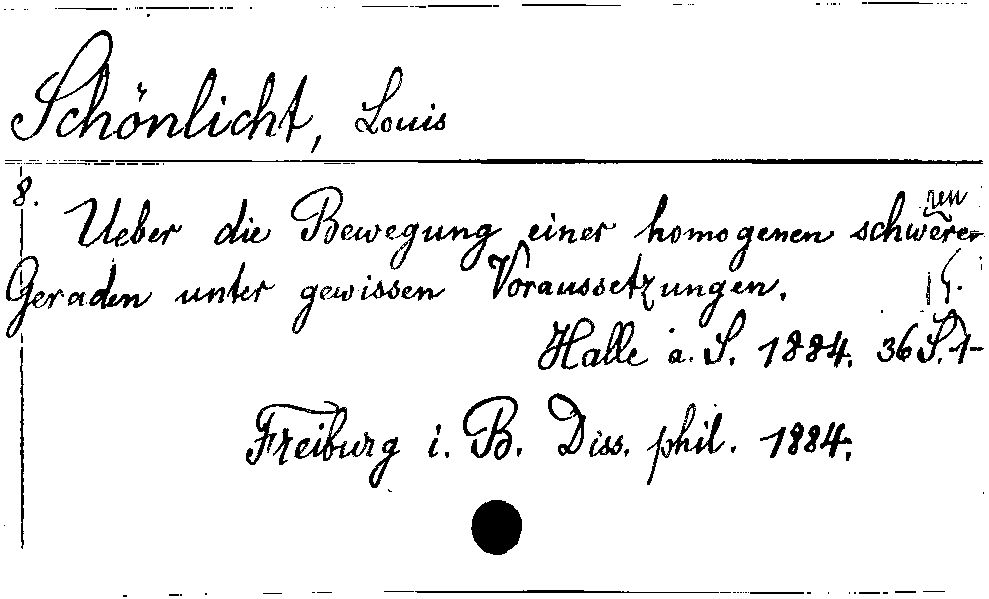 Schönlicht, Louis
8.
Ueber die Bewegung einer homogenen schweren
Geraden unter gewissen Voraussetzungen.
Halle a. S. 1884. 36 S.
Freiburg i. B. Diss. phil. 1884.